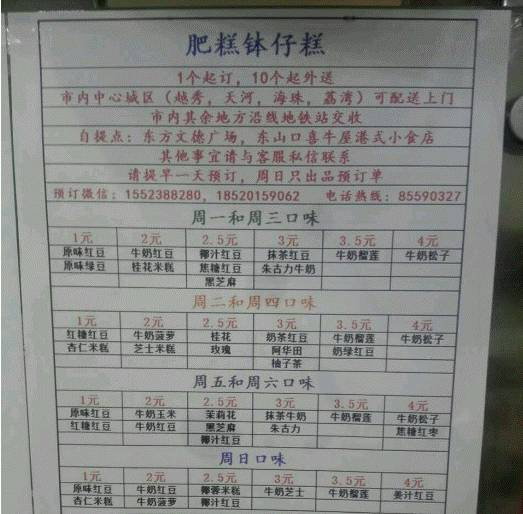 肥糕钵仔糕
1个起订，10个起外送
市内中心城区（越秀，天河，海珠，荔湾）可配送上门
市内其余地方沿线地铁站交收
自提点：东方文德广场，东山口喜牛屋港式小食店
其他事宜请与客服私信联系
请提早一天预订，周日只出品预订单
预订微信：1552388280，18520159062 电话热线：85590327
周一和周三口味
1元 2元 2.5元 3元 3.5元 4元
原味红豆 牛奶红豆 椰汁红豆 抹茶红豆 牛奶榴莲 牛奶松子
原味绿豆 桂花米糕 焦糖红豆 朱古力牛奶
黑芝麻
周二和周四口味
1元 2元 2.5元 3元 3.5元 4元
红糖红豆 牛奶菠萝 桂花 奶茶红豆 牛奶榴莲 牛奶松子
杏仁米糕 芝士米糕 玫瑰 阿华田 奶绿红豆
柚子茶
周五和周六口味
1元 2元 2.5元 3元 3.5元 4元
原味红豆 牛奶玉米 茉莉花 抹茶牛奶 牛奶榴莲 牛奶松子
红糖红豆 牛奶红豆 黑芝麻 朱古力 焦糖红枣
椰汁红豆
周日口味
1元 2元 2.5元 3元 3.5元 4元
原味红豆 牛奶红豆 椰蓉米糕 牛奶芝士 牛奶榴莲 姜汁红豆
杏仁米糕 牛奶菠萝 椰汁红豆